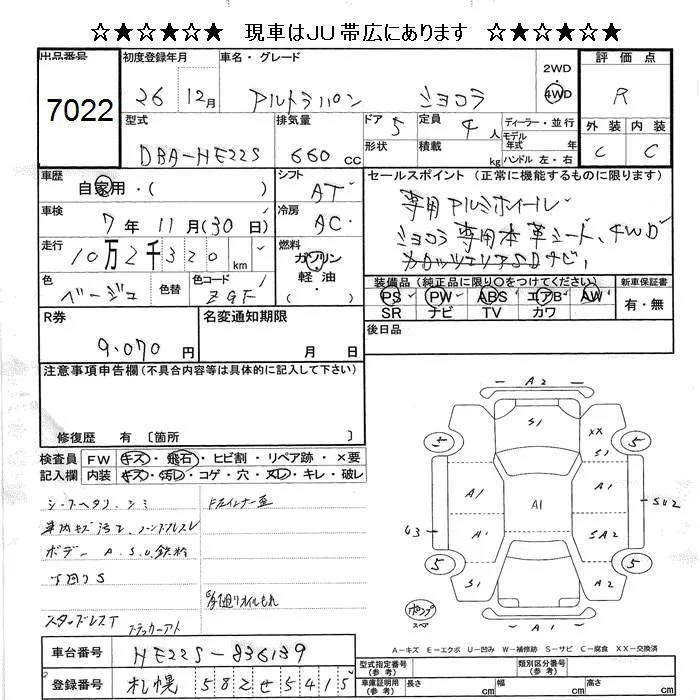 ☆★☆★☆★ 現車はJU帯広にあります ☆★☆★☆★
出品番号 初度登録年月 車名・グレード 評価点
7022 26 12月 アルトラパン ショコラ 2WD 4WD R
型式 排気量 ドア 5 定員 4 人 ディーラー・並行 外装 内装
DBA-HE22S 660 cc 形状 積載 kg モデル年式 年 ハンドル 左・右 C C
車歴 自家用・( ) シフト AT セールスポイント(正常に機能するものに限ります)
車検 7年 11月(30日) 冷房 AC 専用アルミホイール
走行 10万2千320 km 燃料 ガソリン 軽・油 ( ) ショコラ専用本革シート、4WD
カロッツェリアSDナビ
色 ベージュ 色替 色コード ZGF 装備品(純正品に限り○をつけてください) 新車保証書
PS PW ABS エアB AW 有・無
SR ナビ TV カワ
R券 9.070 円 名変通知期限 月 日 後日品
注意事項申告欄(不具合内容等は具体的に記入して下さい)
修復歴 有 〔箇所 〕
検査員 FW キズ・飛石・ヒビ割・リペア跡・×要
記入欄 内装 キズ・汚レ・コゲ・穴・スレ・キレ・破レ
シートヘタリ、シミ Fインナー
車内キズ汚レ
ボデー A.S.U.鉄粉
下回りS
下廻りオイルもれ
スタッドレスT
A2
S1 XX
5 S1 5
A1 A1 SU2
A1
43 A1 SA2
5 S1 A2 5
ポンプ
スペア A1
A-キズ E-エクボ U-凹み W-補修跡 S-サビ C-腐食 XX-交換済
車台番号 HE22S-836139 型式指定番号(参考) 類別区分番号(参考)
登録番号 札幌 582 せ 5415 車庫証明用(参考) 長さ cm 幅 cm 高さ cm